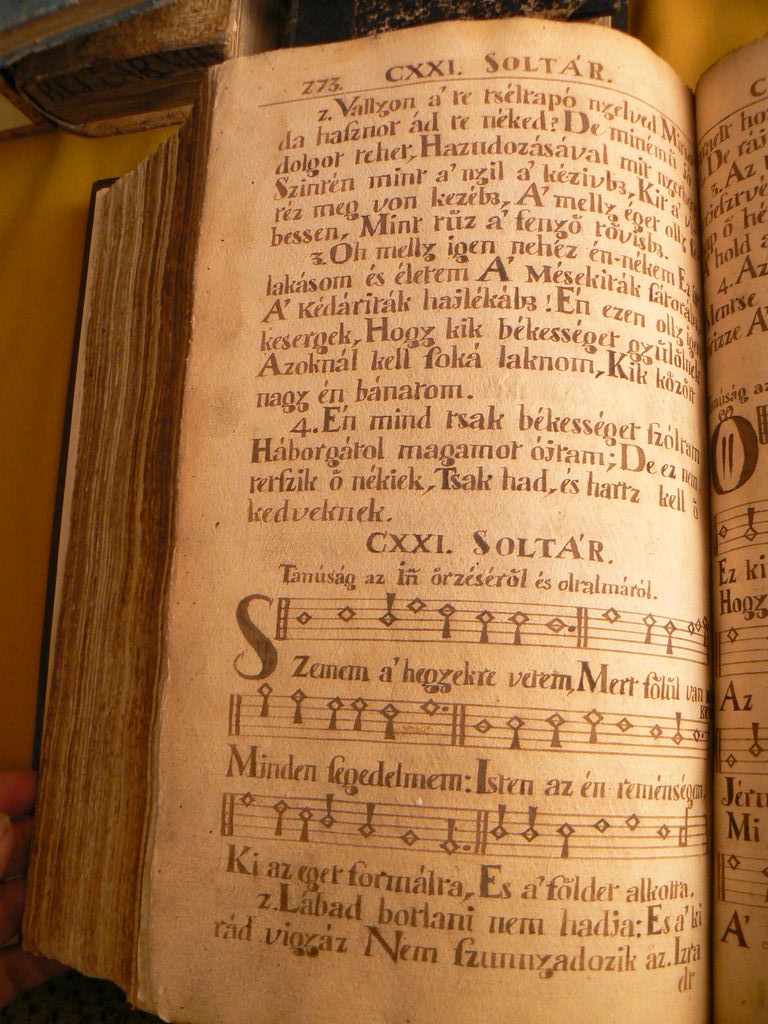 773. CXXI. SOLTÁR.
2. Vallyon a' te tséltapó nyelved Mi
da hasznot ád te néked? De minemű
dolgot tehet, Hazudozásával mit nyer
Szintén mint a' nyil a' kézivbȝ, Kit a' v
téz meg von kezébȝ, A' melly éget olly
bessen, Mint tűz a' fenyő tövisbȝ.
3. Oh melly igen nehéz én-nékem Ez
lakásom és életem A' Mésekiták sátorábȝ
A' Kédáriták hajlékábȝ! Én ezen olly igen
kesergek, Hogy kik békességet gyűlölnek
Azoknál kell soká laknom, Kik között
nagy én bánatom.
4. Én mind tsak békességet szóltam
Háborgátol magamot ójtam; De ez nem
tetszik ő nékiek, Tsak had, és hartz kell ő
kedveknek.
CXXI. SOLTÁR.
Tanúság az Iñ őrzéséről és oltalmáról.
SZemem a' hegyekre vetem, Mert fölűl van
Minden segedelmem: Isten az én reménségem,
Ki az eget formálta, Es a' földet alkotta.
2. Lábad botlani nem hadja: Es a' ki
rád vigyáz Nem szunnyadozik az. Izra
el
De
3. Az
A' hold a
4. Az
Mentse
rizze A'
núság az
Ö
Ez ki
Hogy
Az
Mi
A'